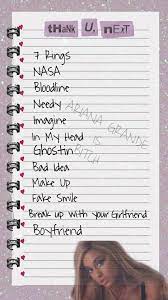 thank u, next
7 Rings
NASA
Bloodline
Needy
Imagine
In My Head
Ghostin
Bad Idea
Make Up
Fake Smile
Break up with your Girlfriend
Boyfriend
ARIANA GRANDE
IS
BITCH